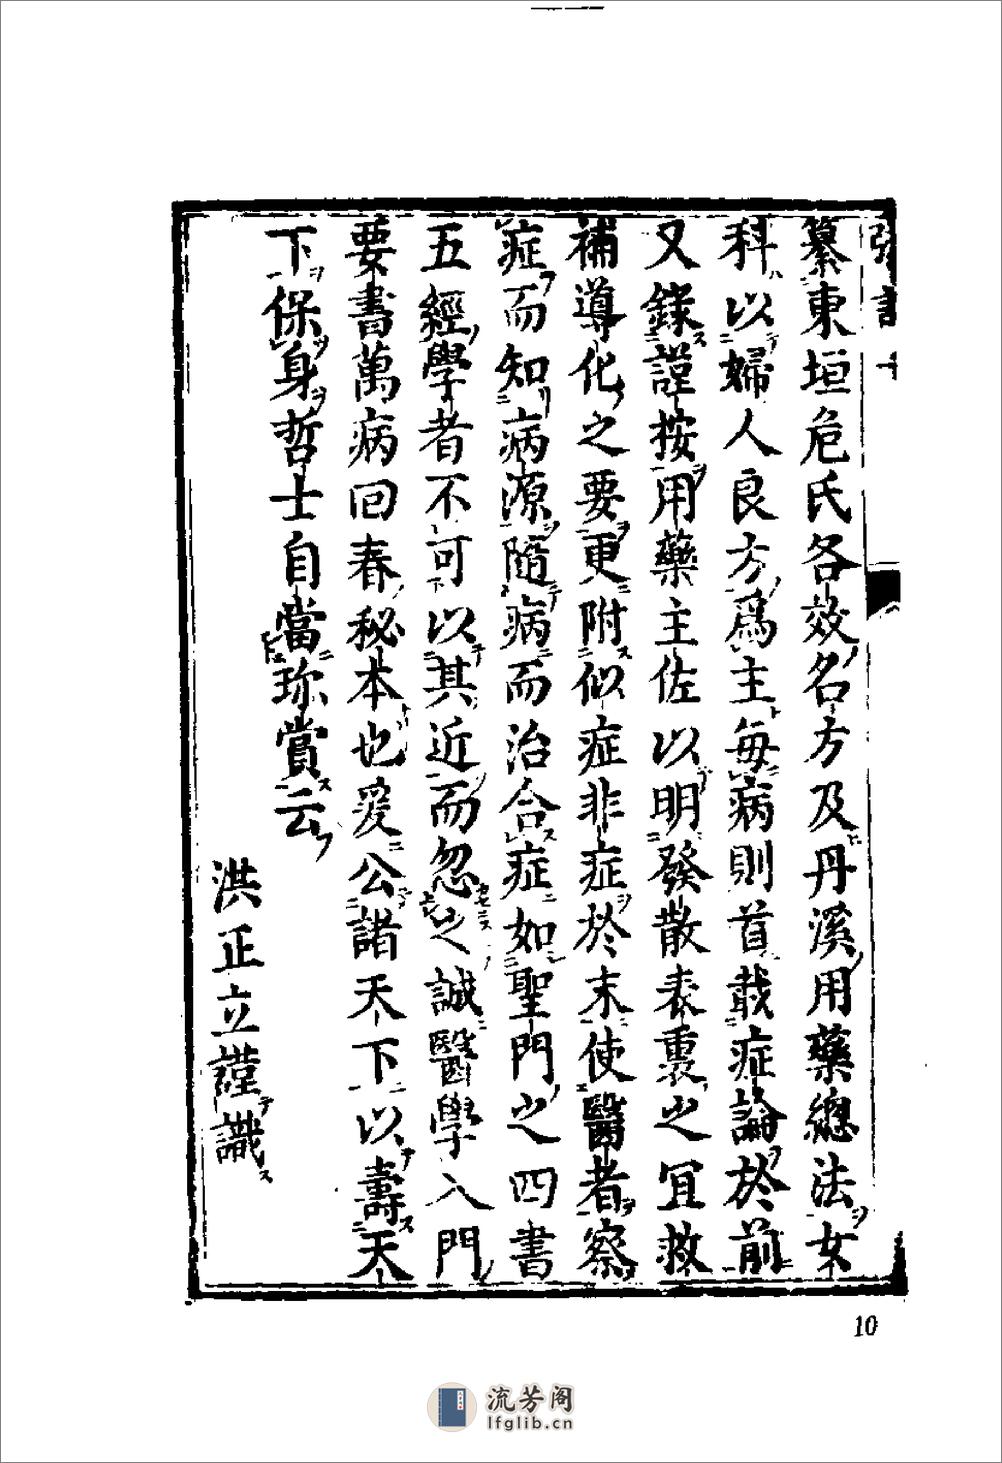 纂東垣危氏各效名方及丹溪用藥總法女
科以婦人良方爲主每病則首載症論於前
又錄謹按用藥主佐以明發散表裏之宜救
補導化之要更附似症非症於末使醫者察
症而知病源隨病而治合症如聖門之四書
五經學者不可以其近而忽之誠醫學入門
要書萬病回春秘本也爰公諸天下以壽天
下保身哲士自當珎賞云
洪正立謹識
10
流芳阁
lfglib.cn